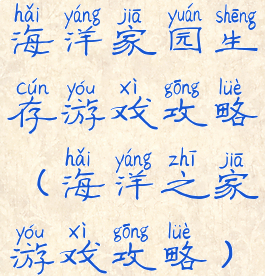 hǎi yáng jiā yuán shēng
海洋家园生
cún yóu xì gōng lüè
存游戏攻略
hǎi yáng zhī jiā
（海洋之家
yóu xì gōng lüè
游戏攻略）